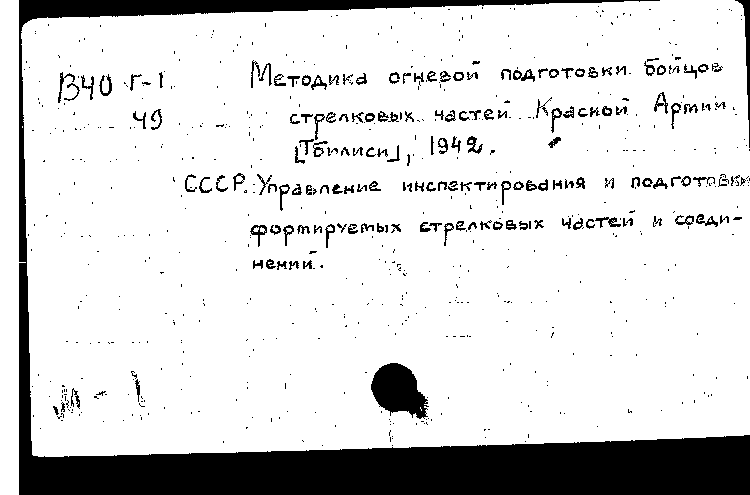 В40 г-1 Методика огневой подготовки бойцов
49 стрелковых частей Красной Армии.
[Тбилиси], 1942.
СССР. Управление инспектирования и подготовки
формируемых стрелковых частей и соеди-
нений.
М-1